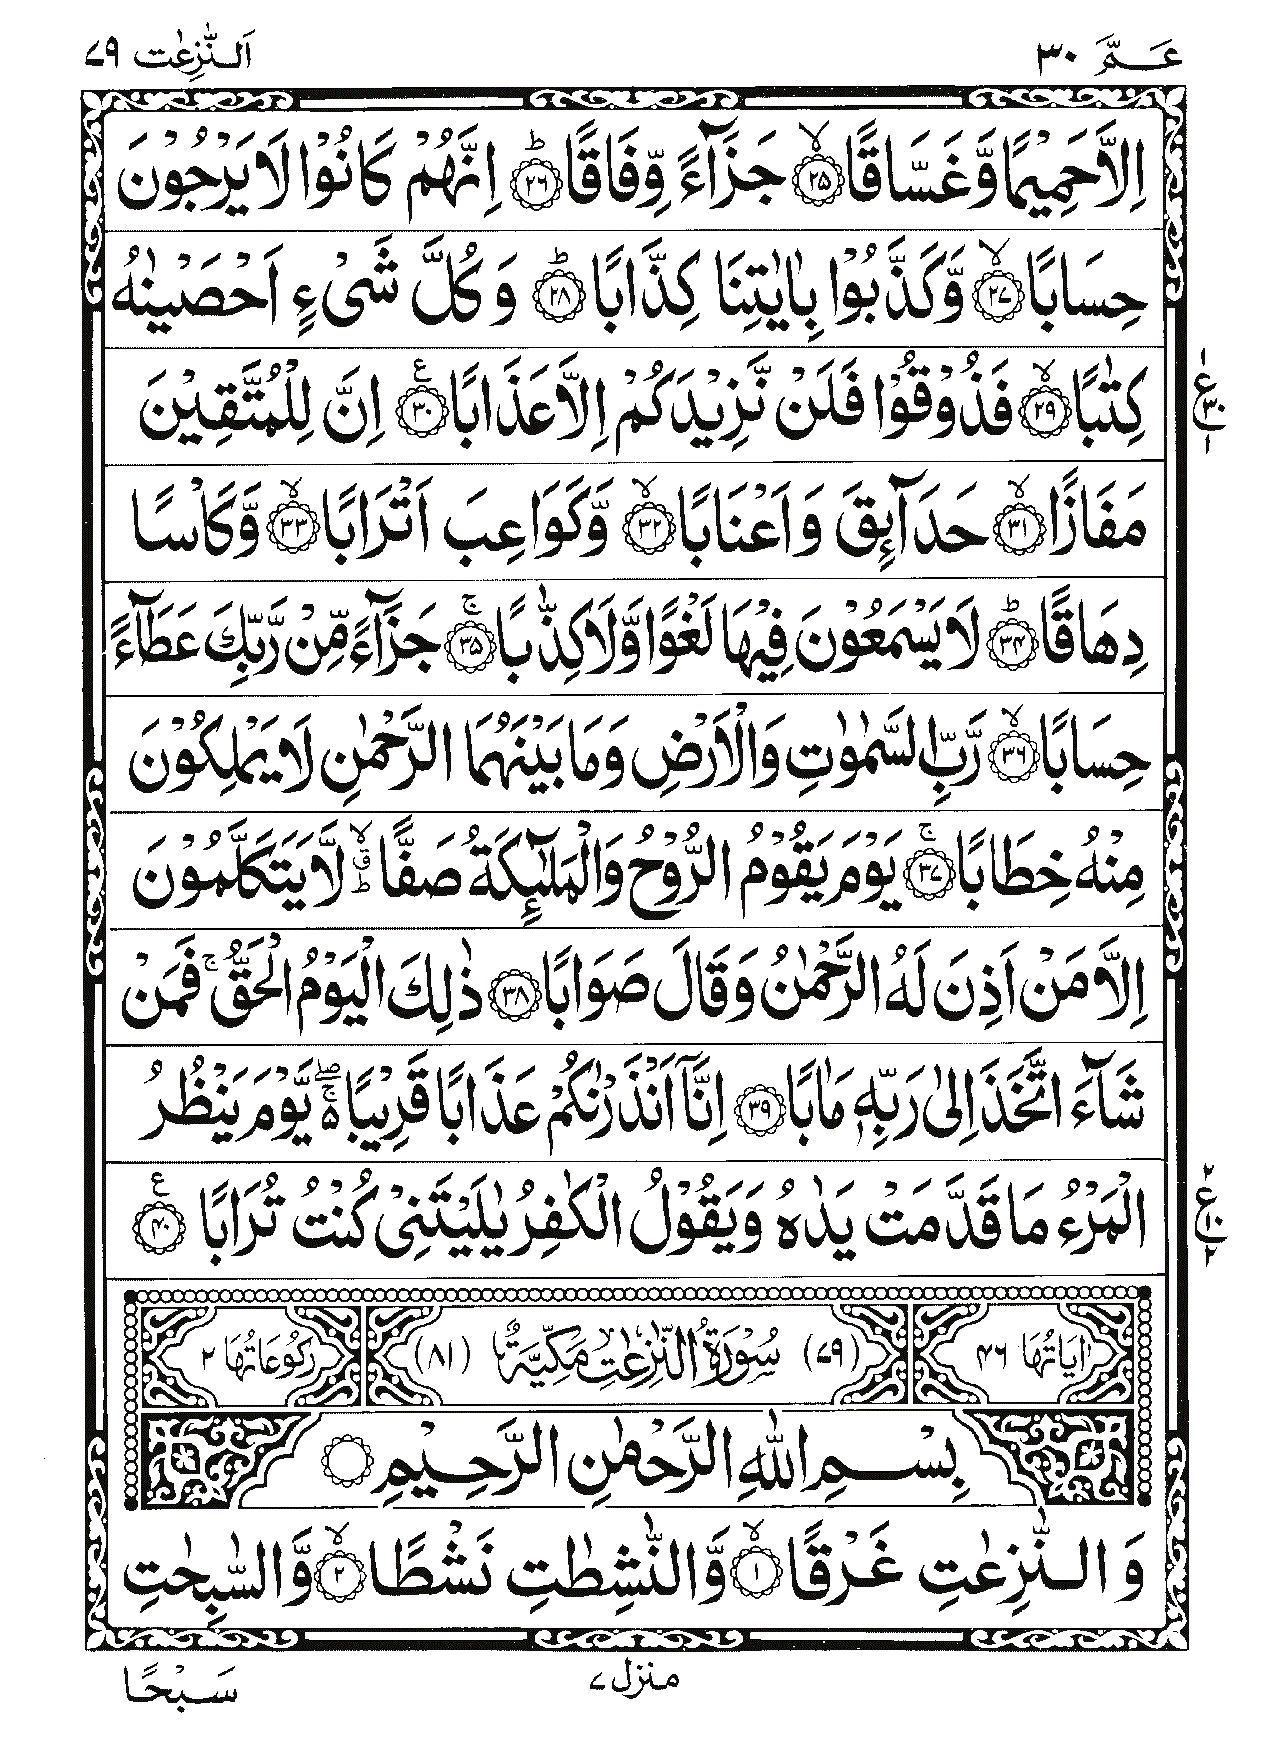 عَمَّ ٣٠
اَلنّٰزِعٰت ٧٩
اِلَّا حَمِيْمًا وَّغَسَّاقًا ﴿٢٥﴾ۙ جَزَآءً وِّفَاقًا ﴿٢٦﴾ؕ اِنَّهُمْ كَانُوْا لَا يَرْجُوْنَ
حِسَابًا ﴿٢٧﴾ۙ وَّكَذَّبُوْا بِاٰيٰتِنَا كِذَّابًا ﴿٢٨﴾ؕ وَكُلَّ شَىْءٍ اَحْصَيْنٰهُ
كِتٰبًا ﴿٢٩﴾ۙ فَذُوْقُوْا فَلَنْ نَّزِيْدَكُمْ اِلَّا عَذَابًا ﴿٣٠﴾ع اِنَّ لِلْمُتَّقِيْنَ
١ ع ٣٠ ١
مَفَازًا ﴿٣١﴾ۙ حَدَآئِقَ وَاَعْنَابًا ﴿٣٢﴾ۙ وَّكَوَاعِبَ اَتْرَابًا ﴿٣٣﴾ۙ وَّكَاْسًا
دِهَاقًا ﴿٣٤﴾ؕ لَا يَسْمَعُوْنَ فِيْهَا لَغْوًا وَّلَا كِذّٰبًا ﴿٣٥﴾ۚ جَزَآءً مِّنْ رَّبِّكَ عَطَآءً
حِسَابًا ﴿٣٦﴾ۙ رَّبِّ السَّمٰوٰتِ وَالْاَرْضِ وَمَا بَيْنَهُمَا الرَّحْمٰنِ لَا يَمْلِكُوْنَ
مِنْهُ خِطَابًا ﴿٣٧﴾ۚ يَوْمَ يَقُوْمُ الرُّوْحُ وَالْمَلٰٓئِكَةُ صَفًّا ۙقؕ لَّا يَتَكَلَّمُوْنَ
اِلَّا مَنْ اَذِنَ لَهُ الرَّحْمٰنُ وَقَالَ صَوَابًا ﴿٣٨﴾ ذٰلِكَ الْيَوْمُ الْحَقُّ ۚ فَمَنْ
شَآءَ اتَّخَذَ اِلٰى رَبِّهٖ مَاٰبًا ﴿٣٩﴾ اِنَّآ اَنْذَرْنٰكُمْ عَذَابًا قَرِيْبًا ۖۚ۵ يَّوْمَ يَنْظُرُ
الْمَرْءُ مَا قَدَّمَتْ يَدٰهُ وَيَقُوْلُ الْكٰفِرُ يٰلَيْتَنِىْ كُنْتُ تُرَابًا ﴿٤٠﴾ع
٢ ع ١٠ ٢
اٰيَاتُهَا ٤٦ (٧٩) سُوْرَةُ النّٰزِعٰتِ مَكِّيَّةٌ (٨١) رُكُوْعَاتُهَا ٢
بِسْمِ اللّٰهِ الرَّحْمٰنِ الرَّحِيْمِ
وَالنّٰزِعٰتِ غَرْقًا ﴿١﴾ۙ وَّالنّٰشِطٰتِ نَشْطًا ﴿٢﴾ۙ وَّالسّٰبِحٰتِ
منزل ٧
سَبْحًا